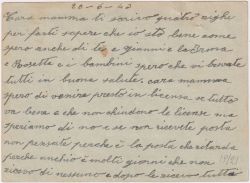 20-6-42
Cara mamma ti scrivo quattro righe
per farti sapere che io sto bene come
spero anche di te e gianni e la Irma
e Rosetta e i bambini spero che vi trovate
tutti in buona salute cara mamma
spero di venire presto in licensa se tutto
va bene e che non chiudono le license ma
speriamo di no e se non ricevete posta
non pensate perche è la posta che ritarda
perche anchio è molti giorni che non
ricevo di nessuno e dopo le ricevo tutte